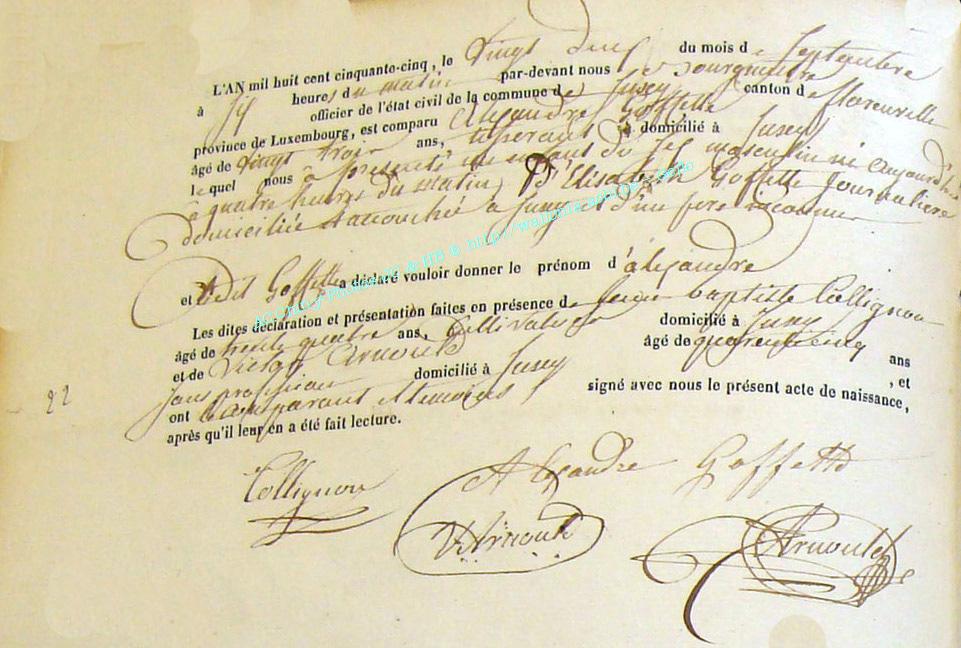 L'AN mil huit cent cinquante-cinq, le vingt deux du mois de Septembre
à Six heures du matin par-devant nous Bourgmestre
officier de l'état civil de la commune de Jusey canton de Florenville
province de Luxembourg, est comparu Alexandre Goffette
âgé de vingt trois ans, tisserant domicilié à Jusey
lequel nous à présenté un enfant du sex masculin né aujourd'hui
à quatre heures du matin, D'Elisabeth Goffette Journalière
domiciliée et accouchée à Jusey et d'un père inconnu
et ledit Goffette a déclaré vouloir donner le prénom d'alexandre
Les dites déclaration et présentation faites en présence de baptiste Collignon
âgé de trente quatre ans, Cultivateur domicilié à Jusey
et de Victor Arnould âgé de quarente cinq ans
Sans profession domicilié à Jusey , et
22
ont Comparant et temoins signé avec nous le présent acte de naissance,
après qu'il leur en a été fait lecture.
Collignon Alexandre Goffette
V. Arnould Arnould